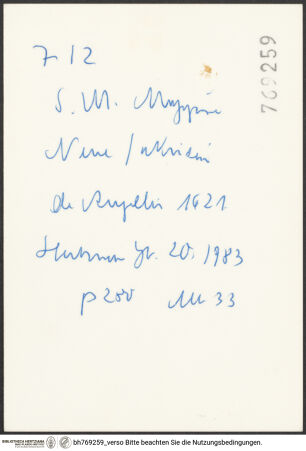 7 12
769259
S. M. Maggiore
Neue Sakristei
de Angelis 1621
Jb. 20, 1983
p 200 M 33
BIBLIOTHECA HERTZIANA bh769259_verso Bitte beachten Sie die Nutzungsbedingungen.